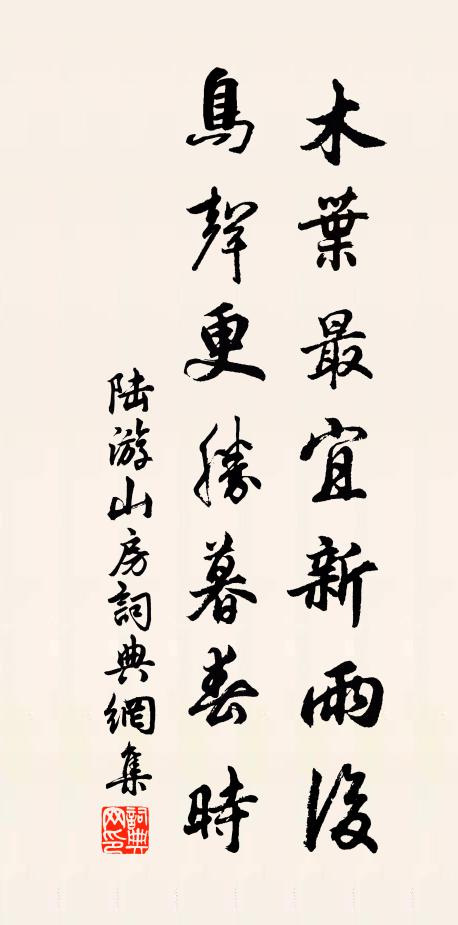 木葉最宜新雨後
鳥聲更勝暮春時
陆游山房詞典網集
詞典網印